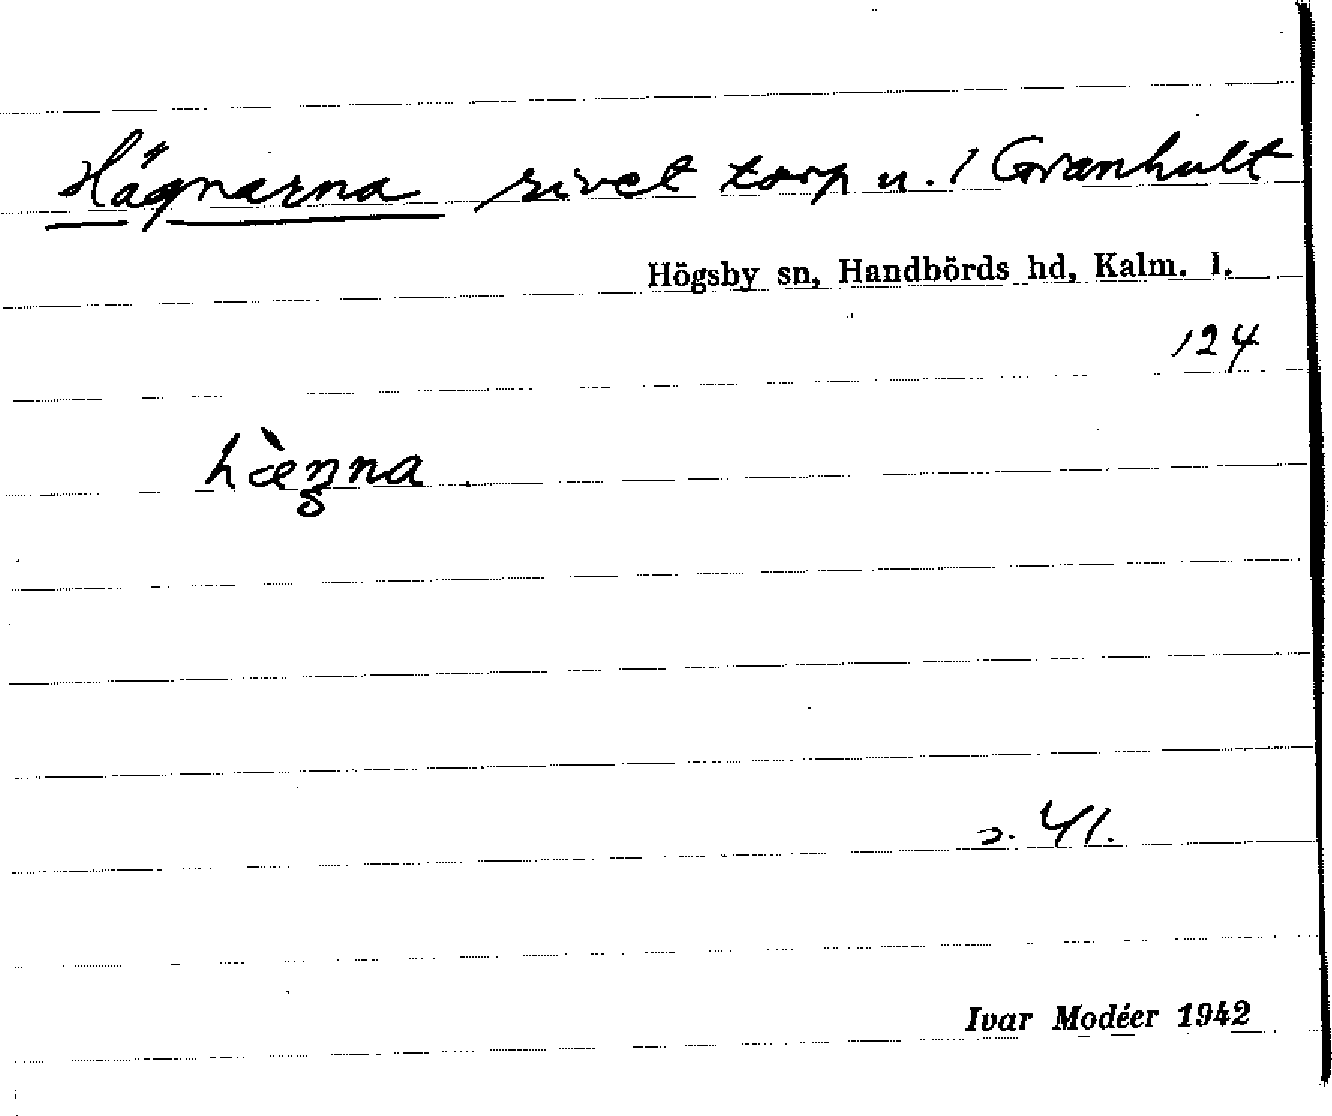 Hägnarna rivet torp u. 1 Granhult
Högsby sn, Handbörds hd, Kalm. l.
124
hæ̀ŋna
s. 41.
Ivar Modéer 1942